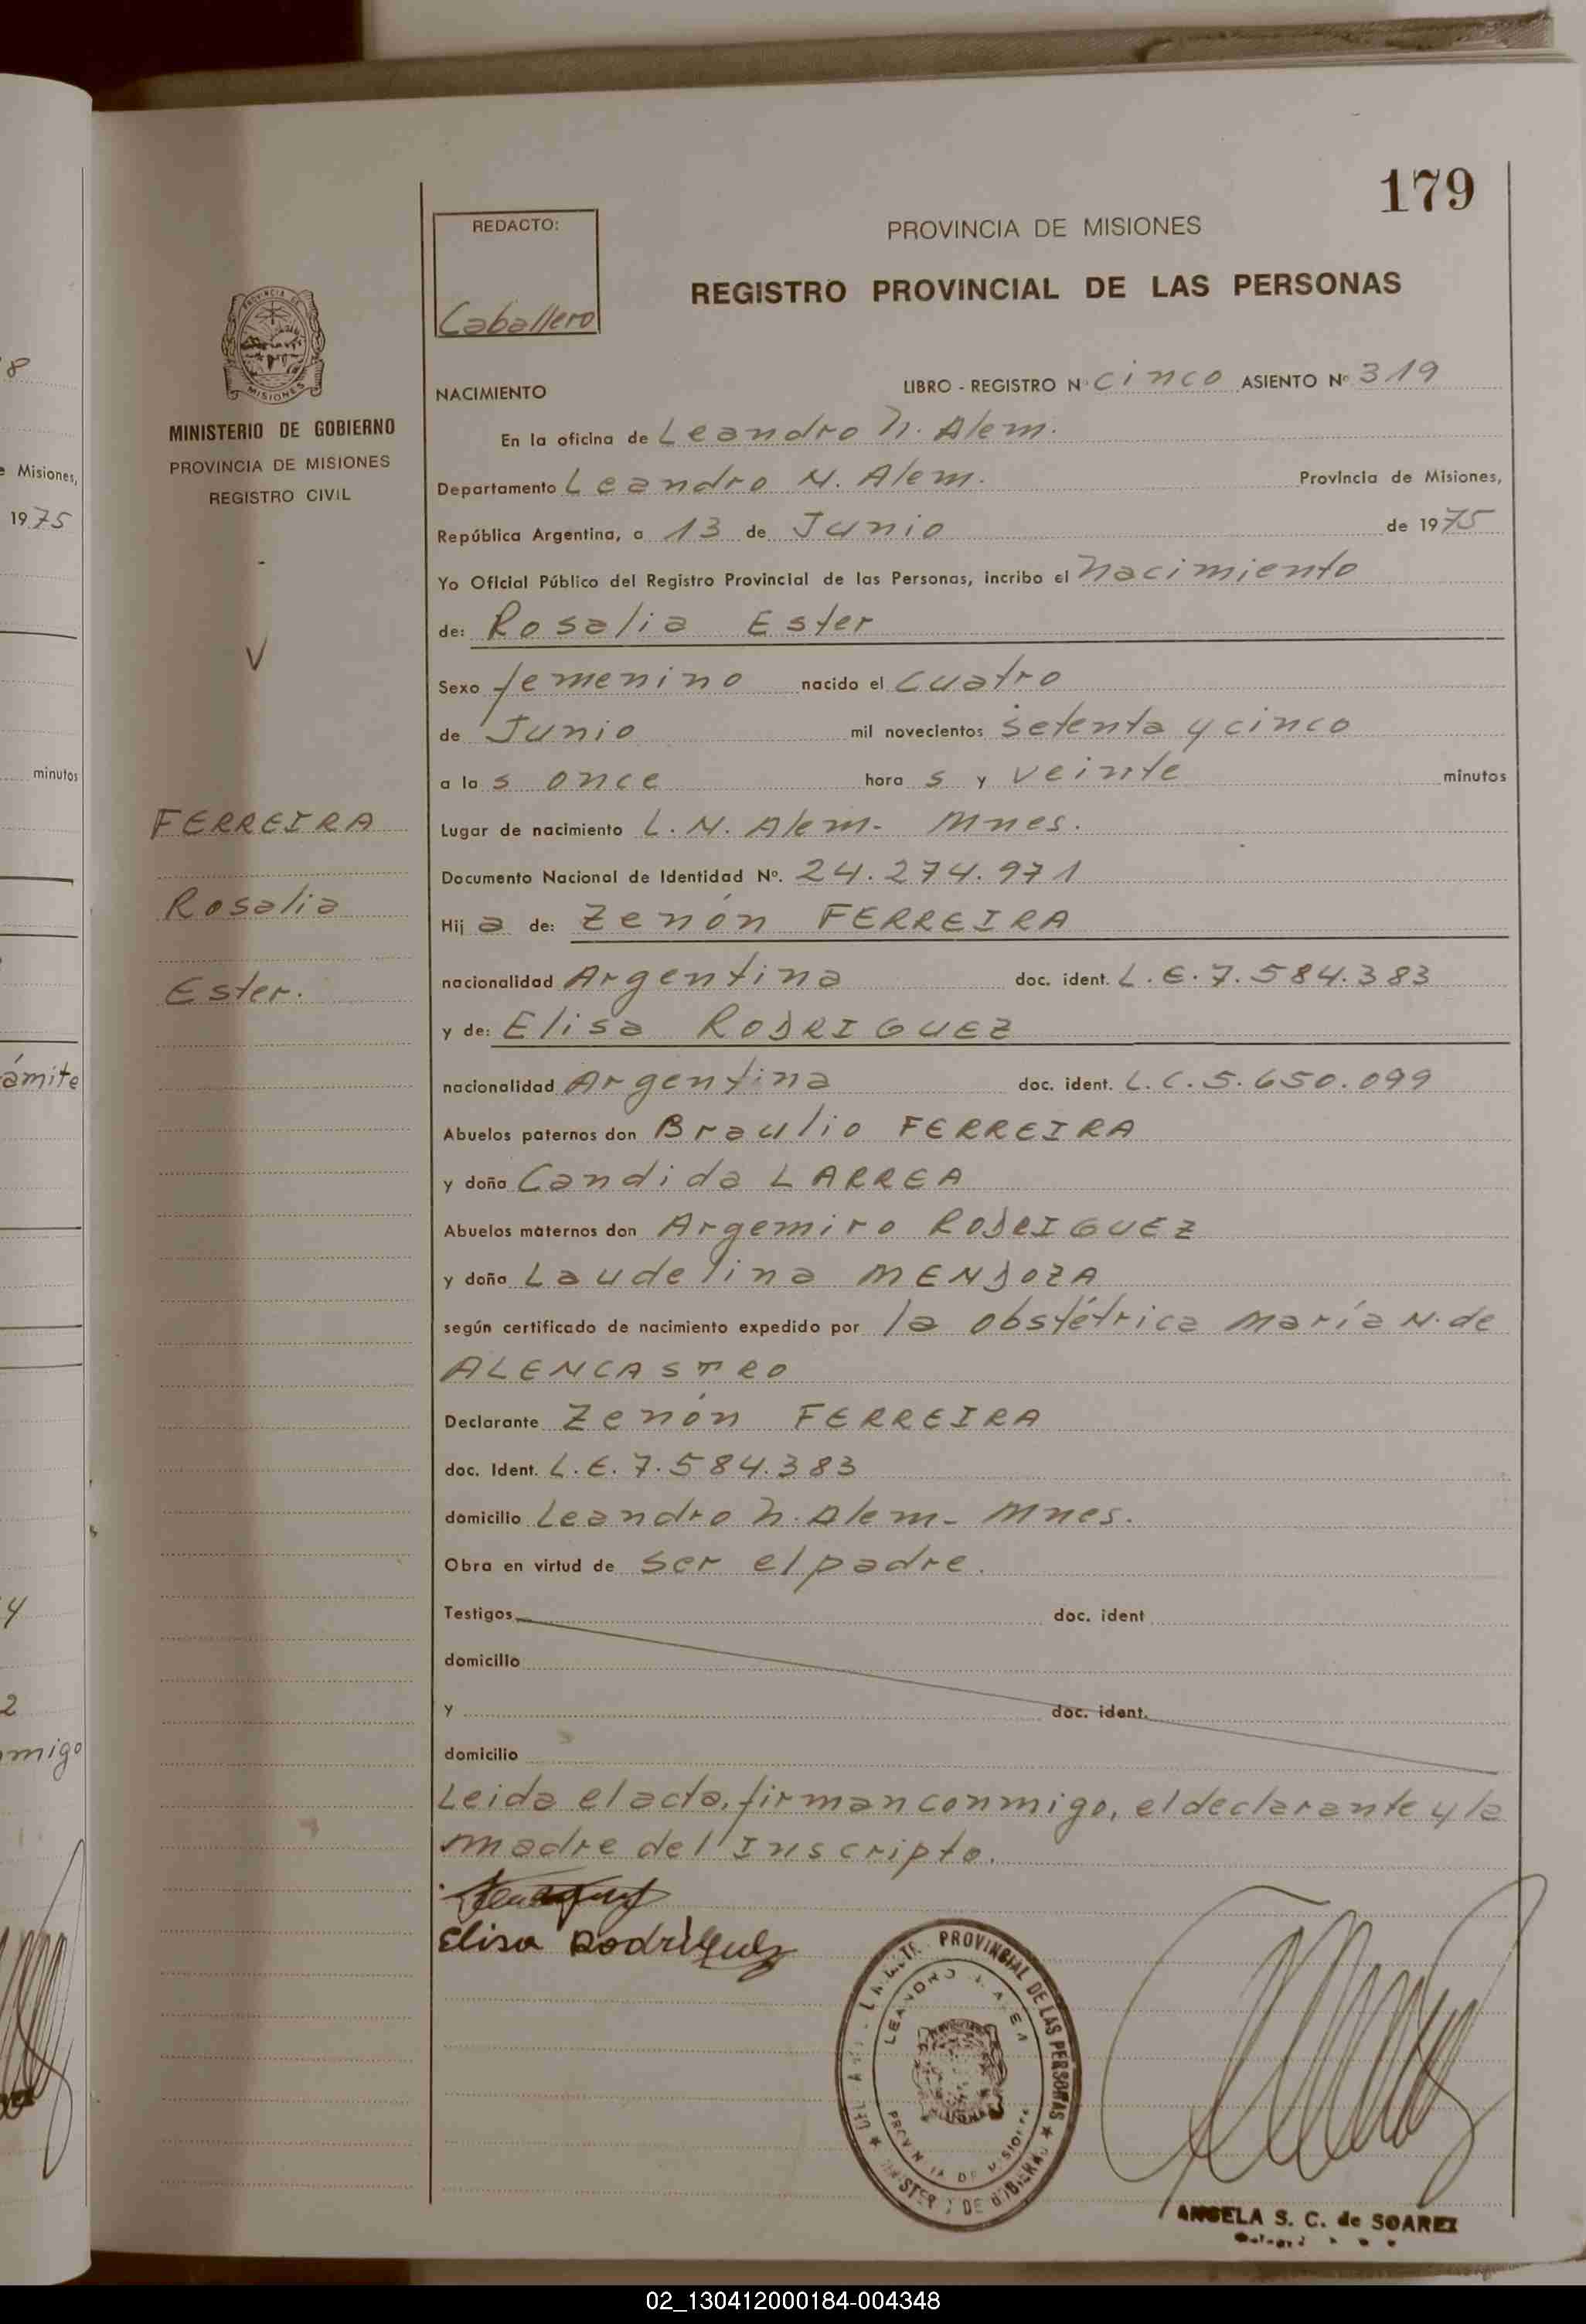 179
REDACTO:
Caballero
PROVINCIA DE MISIONES
REGISTRO PROVINCIAL DE LAS PERSONAS
MINISTERIO DE GOBIERNO
PROVINCIA DE MISIONES
REGISTRO CIVIL
NACIMIENTO LIBRO - REGISTRO N° cinco ASIENTO N° 319
En la oficina de Leandro N. Alem.
Departamento Leandro N. Alem. Provincia de Misiones,
República Argentina, a 13 de Junio de 1975
Yo Oficial Público del Registro Provincial de las Personas, incribo el nacimiento
de: Rosalia Ester
Sexo femenino nacido el cuatro
de Junio mil novecientos setenta y cinco
a la s once hora s y veinte minutos
Lugar de nacimiento L. N. Alem- Mnes.
Documento Nacional de Identidad N°. 24.274.971
Hij a de: Zenón FERREIRA
nacionalidad Argentina doc. ident. L.E. 7.584.383
y de: Elisa RODRIGUEZ
nacionalidad Argentina doc. ident. L.C. 5.650.099
Abuelos paternos don Braulio FERREIRA
y doña Candida LARREA
Abuelos maternos don Argemiro RODRIGUEZ
y doña Laudelina MENDOZA
según certificado de nacimiento expedido por la obstétrica María N. de
ALENCASTRO
Declarante Zenón FERREIRA
doc. Ident. L.E. 7.584.383
domicilio Leandro N. Alem- Mnes.
Obra en virtud de ser el padre.
Testigos doc. ident
domicilio
y doc. ident.
domicilio
Leida el acta, firman conmigo, el declarante y la
madre del Inscripto.
Elisa Rodriguez
FERREIRA
Rosalia
Ester.
PROVINCIAL DE LAS PERSONAS
LEANDRO N. ALEM
PROVINCIA DE MISIONES
MINISTERIO DE GOBIERNO
ANGELA S. C. de SOAREZ
e Misiones,
1975
minutos
ámite
migo
02_130412000184-004348